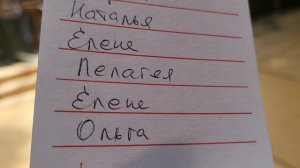 Наталья
Елене
Пелагея
Елене
Ольга